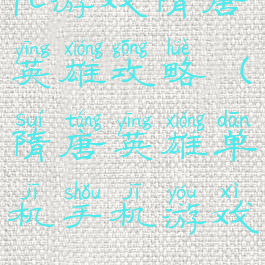 化游戏隋唐
yīng xióng gōng lüè
英雄攻略（
suí táng yīng xióng dān
隋唐英雄单
jī shǒu jī yóu xì
机手机游戏